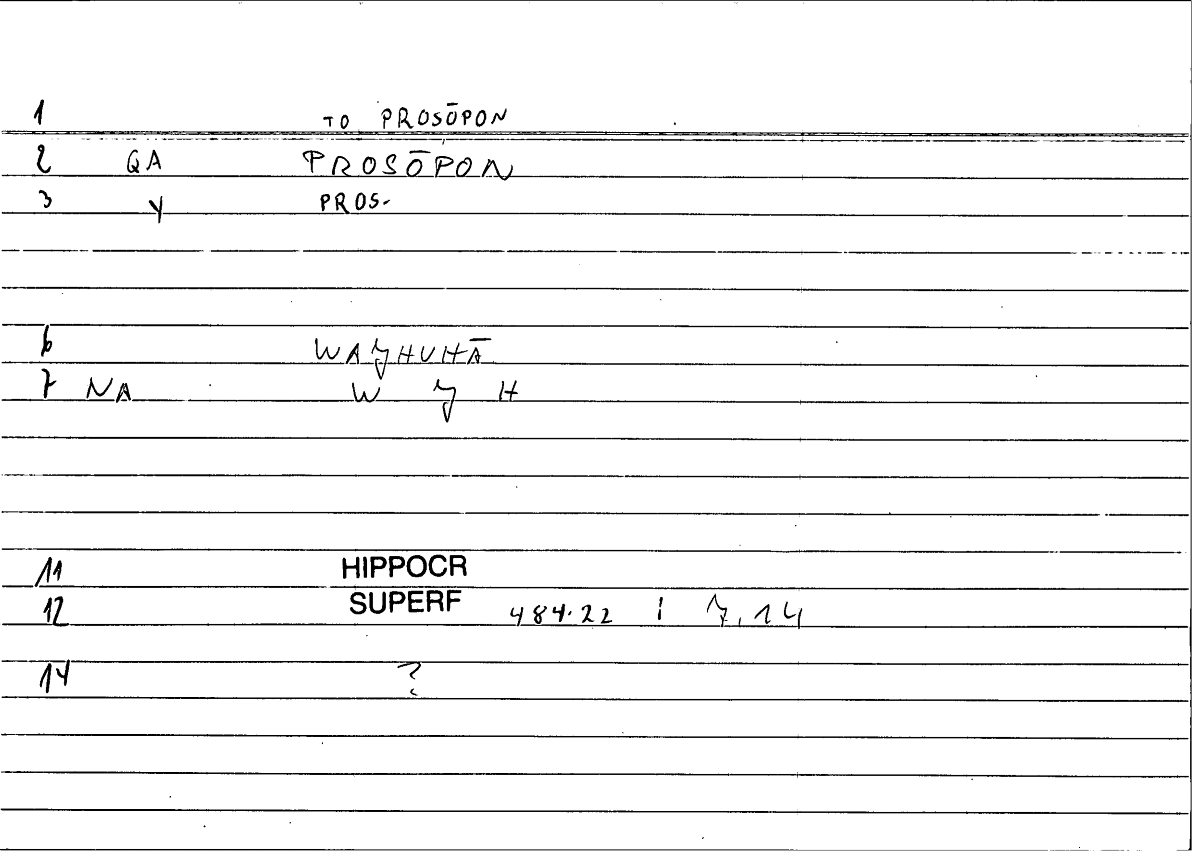 1 TO PROSŌPON
2 QA PROSŌPON
3 Y PROS-
6 WAǦHUHĀ
7 NA W Ǧ H
11 HIPPOCR
12 SUPERF 484.22 | 7,14
14 ?